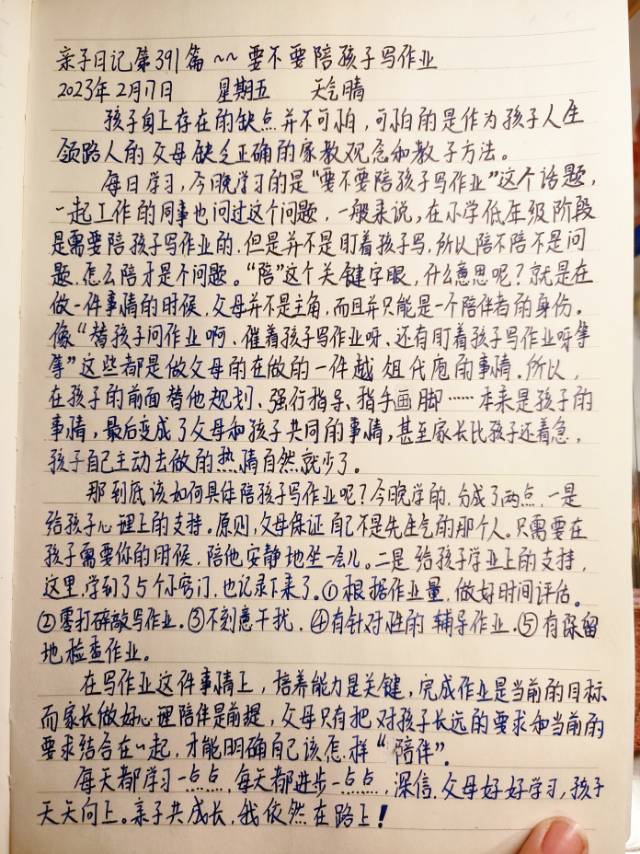 亲子日记第391篇~~要不要陪孩子写作业
2023年2月17日 星期五 天气晴
孩子身上存在的缺点并不可怕,可怕的是作为孩子人生
领路人的父母缺乏正确的家教观念和教子方法。
每日学习,今晚学习的是“要不要陪孩子写作业”这个话题,
一起工作的同事也问过这个问题,一般来说,在小学低年级阶段
是需要陪孩子写作业的.但是并不是盯着孩子写.所以陪不陪不是问
题.怎么陪才是个问题。“陪”这个关键字眼,什么意思呢?就是在
做一件事情的时候,父母并不是主角,而且并只能是一个陪伴者的身份。
像“替孩子问作业啊、催着孩子写作业呀、还有盯着孩子写作业呀等
等”这些都是做父母的在做的一件越俎代庖的事情.所以,
在孩子的前面替他规划、强行指导、指手画脚……本来是孩子的
事情,最后变成了父母和孩子共同的事情,甚至家长比孩子还着急,
孩子自己主动去做的热情自然就少了。
那到底该如何具体陪孩子写作业呢?今晚学的.分成了两点.一是
给孩子心理上的支持。原则,父母保证自己不是先生气的那个人.只需要在
孩子需要你的时候,陪他安静地坐一会儿。二是给孩子学业上的支持,
这里,学到了5个小窍门,也记录下来了.①根据作业量,做好时间评估。
②零打碎敲写作业.③不刻意干扰.④有针对性的辅导作业.⑤有保留
地检查作业。
在写作业这件事情上,培养能力是关键,完成作业是当前的目标
而家长做好心理陪伴是前提,父母只有把对孩子长远的要求和当前的
要求结合在一起,才能明确自己该怎样“陪伴”.
每天都学习一点点,每天都进步一点点,深信.父母好好学习,孩子
天天向上。亲子共成长,我依然在路上!